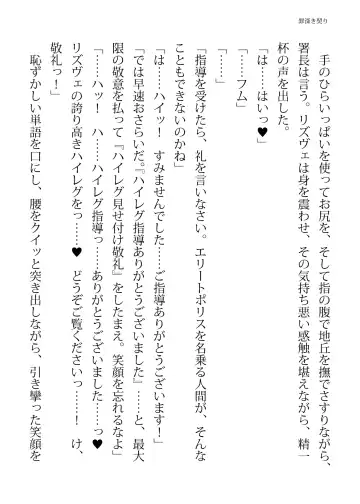 罪深き契り
手のひらいっぱいを使ってお尻を、そして指の腹で地丘を撫でさすりながら、
署長は言う。リズヴェは身を震わせ、その気持ち悪い感触を堪えながら、精一
杯の声を出した。
「は……はいっ♥」
「……フム」
「……」
「指導を受けたら、礼を言いなさい。エリートポリスを名乗る人間が、そんな
こともできないのかね」
「は……ハイッ！　すみませんでした……ご指導ありがとうございます！」
「では早速おさらいだ。『ハイレグ指導ありがとうございました』……と、最大
限の敬意を払って『ハイレグ見せ付け敬礼』をしたまえ。笑顔を忘れるなよ」
「……ハッ！　ハ……ハイレグ指導っ……ありがとうございました……っ♥
リズヴェの誇り高きハイレグをっ……♥　どうぞご覧くださいっ……！　け、
敬礼っ！」
恥ずかしい単語を口にし、腰をクイッと突き出しながら、引き攣った笑顔を